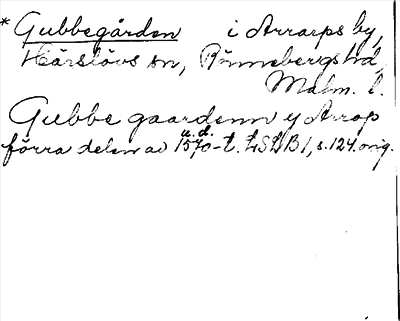 * Gubbegården i Arrarps by,
Härslövs sn, Rönnebergs hd,
Malm. l.
Gubbe gaardenn y Arrop
u. d.
förra delen av 1570-t. LSLB 1, s. 124. orig.